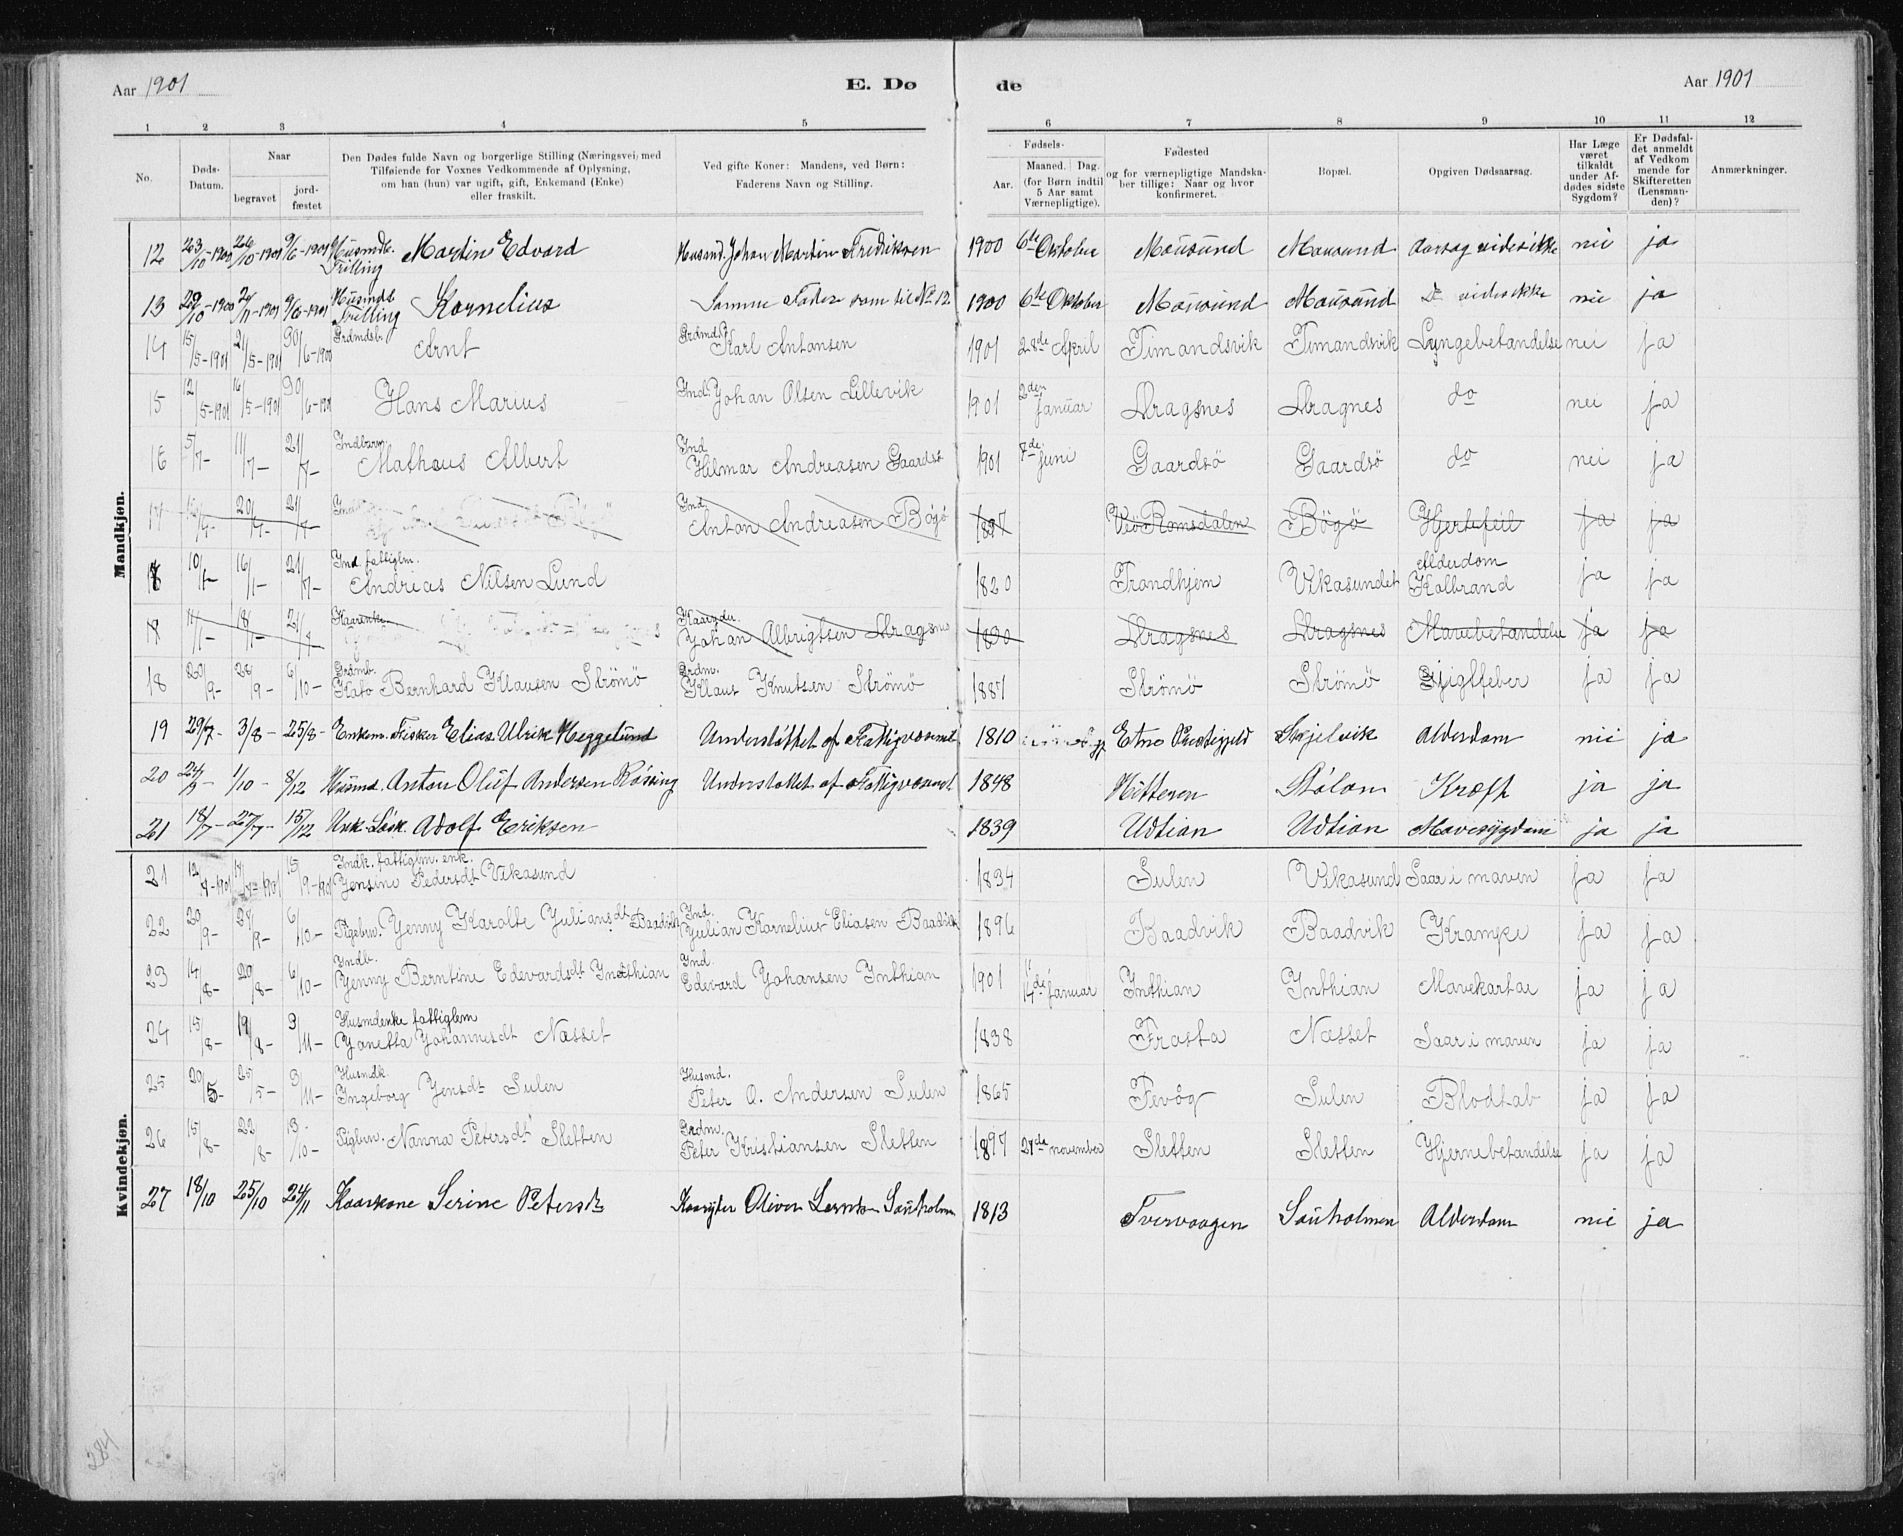 Aar 1901 E. Dø de Aar 1901
1 2 3 4 5 6 7 8 9 10 11 12
No.
Døds-Datum.
Naar
begravet
jord-fæstet
Den Dødes fulde Navn og borgerlige Stilling (Næringsvei) med
Tilføiende for Voxnes Vedkommende af Oplysning,
om han (hun) var ugift, gift, Enkemand (Enke)
eller fraskilt.
Ved gifte Koner: Mandens, ved Børn:
Faderens Navn og Stilling.
Fødsels-
Aar.
Maaned. Dag.
(for Børn indtil
5 Aar samt
Værnepligtige).
Fødested
og for værnepligtige Mandska-
ber tillige: Naar og hvor
konfirmeret.
Bopæl.
Opgiven Dødsaarsag.
Har Læge
været
tilkaldt
under Af-
dødes sidste
Sygdom?
Er Dødsfal-
det anmeldt
af Vedkom
mende for
Skifteretten
(Lensman-
den)?
Anmærkninger.
Mandkjøn.
12 23/10-1900 26/10-1901 9/6-1901 Husmdb. Trilling Martin Edvard Husmd. Johan Martin Fredriksen 1900 6te Oktober Mausund Mausund Aarsag vides ikke nei ja
13 29/10-1900 2/11-1901 9/6-1901 Husmdb Trilling Kornelius Samme Fader som til No 12 1900 6te Oktober Mausund Mausund Do vides ikke nei ja
14 15/5-1901 21/5-1901 30/6-1900 Grdmdsb. Arnt Grdmds. Karl Antonsen 1901 28de April Timandsvik Timandsvik Lungebetændelse nei ja
15 12/5-1901 16/5-1901 30/6-1901 Hans Marius Ind. Johan Olsen Lillevik 1901 2den Januar Dragsnes Dragnes do nei ja
16 5/7- 11/7- 21/7- Indbarn. Mathæus Albert Ind Hilmar Andreasen Gaardsø 1901 7de juni Gaardsø Gaardsø do nei ja
17 20/7- 21/7 Ind Anton Andreasen Bøgø Veø Romsdalen Bøgø Hjertefeil ja ja
10/1- 16/1- 21/7- Ind. fattiglm. Andreas Nilsen Lund 1820 Trondhjem Vikasundet Alderdom Kolbrand ja ja
18 18/1- 21/7 Kaarenke Kaaryder. Johan Albrigtsen Dragsnes Dragsnes Dragsnes Mavebetændelse ja ja
18 20/9- 28/9- 6/10- Grdmb. Kato Bernhard Klausen Strømø Grdm. Klaus Knutsen Strømø 1887 Strømø Strømø Gigtfeber ja ja
19 29/7- 3/8- 25/8- Enkem. Fisker Elias Ulrik Heggelund Understøttet af Fattigvæsenet 1810 Etne Præstegjeld Skjelvik Alderdom nei ja
20 24/9- 1/10- 8/12 Husmd. Anton Oluf Andersen Røssing Understøttet af Fattigvæsenet 1848 Hitteren Stølan Kræft ja ja
21 18/7- 27/7- 15/12 Adolf Eriksen 1839 Udtian Udtian Mavesygdom ja ja
Kvindekjøn.
21 15/9-1901 Indk. fattiglm. enk. Jensine Pedersdt Vikasund 1834 Sulen Vikasund Saar i maven ja ja
22 20/9- 28/9- 6/10- Pigebrn. Jenny Karolte Juliansdt Baadvik Ind. Julian Kornelius Eliasen Baadvik 1896 Baadvik Baadvik Krampe ja ja
23 14/8- 20/8- 6/10- Indb. Jenny Berntine Edevardsdt Inthian Ind. Edevard Johansen Inthian 1901 14de Januar Inthian Inthian Mavekartar ja ja
24 15/8- 19/8- 3/11- Husmdenke fattiglem Janetta Johannesdt Næsset 1838 Frosta Næsset Saar i maven ja ja
25 20/5- 25/5- 3/11- Husmdk. Ingeborg Jensdt Sulen Husmd. Peter O. Andersen Sulen 1865 Fevåg Sulen Blodtab ja ja
26 15/8- 22/8- 13/10- Pigbrn. Nanna Petersdt Sletten Grdm. Peter Kristiansen Sletten 1897 november Sletten Sletten Hjernebetændelse ja ja
27 18/10 25/10 24/11 Kaarkone Serine Petersdt Kaaryder Oliver Sauholmen 1813 Tvervaagen Sauholmen Alderdom nei ja
284